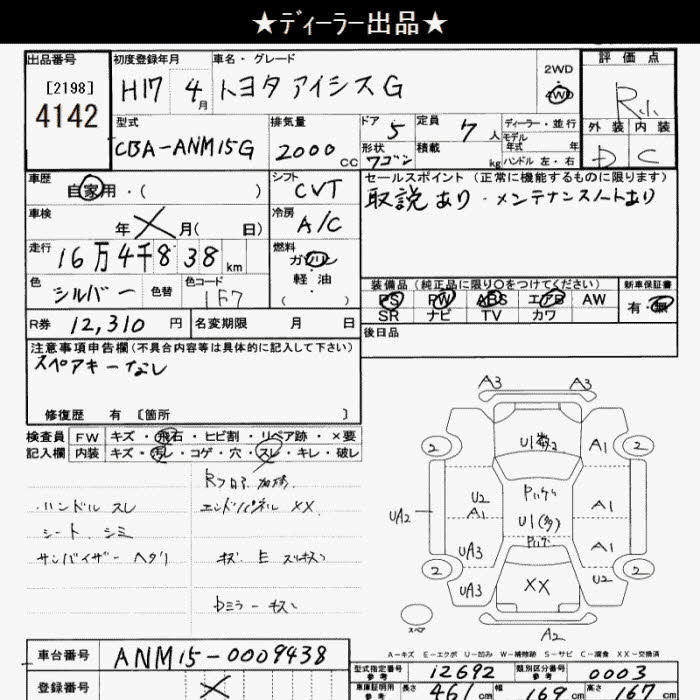 ★ディーラー出品★
出品番号
[2198]
4142
初度登録年月
H17 4月
車名・グレード
トヨタ アイシス G
2WD
4WD
評価点
R小
外装 内装
D C
型式
CBA-ANM15G
排気量
2000 CC
ドア 5
定員 7 人
形状 ワゴン
積載 kg
ディーラー・並行
モデル年式 年
ハンドル 左・右
車歴
自家用・( )
シフト
CVT
セールスポイント (正常に機能するものに限ります)
取説あり・メンテナンスノートあり
車検
年 月( 日)
冷房
A/C
走行
16万4千8 38 km
燃料
ガソリン
軽油
( )
色
シルバー
色替
色コード
1F7
装備品 (純正品に限り○をつけてください)
PS PW ABS エアB AW
SR ナビ TV カワ
新車保証書
有・無
R券 12,310 円
名変期限 月 日
後日品
注意事項申告欄(不具合内容等は具体的に記入して下さい)
スペアキーなし
修復歴 有 [箇所 ]
検査員
記入欄
FW キズ・飛石・ヒビ割・リペア跡・×要
内装 キズ・汚レ・コゲ・穴・スレ・キレ・破レ
Rフロア
ハンドル スレ
エンドパネル XX
シート シミ
サンバイザー ヘタリ
A3 A3
2 U1 2
A1
U2 A1
A1
UA2
U1(多)
UA3
A1
2 2
UA3
XX
U2
スペア
A2
A-キズ E-エクボ U-凹み W-補修跡 S-サビ C-腐食 XX-交換済
車台番号
ANM15-0009438
登録番号
型式指定番号 参考
12692
類別区分番号 参考
0003
車庫証明用 参考
長さ 461 cm
幅 169 cm
高さ 167 cm